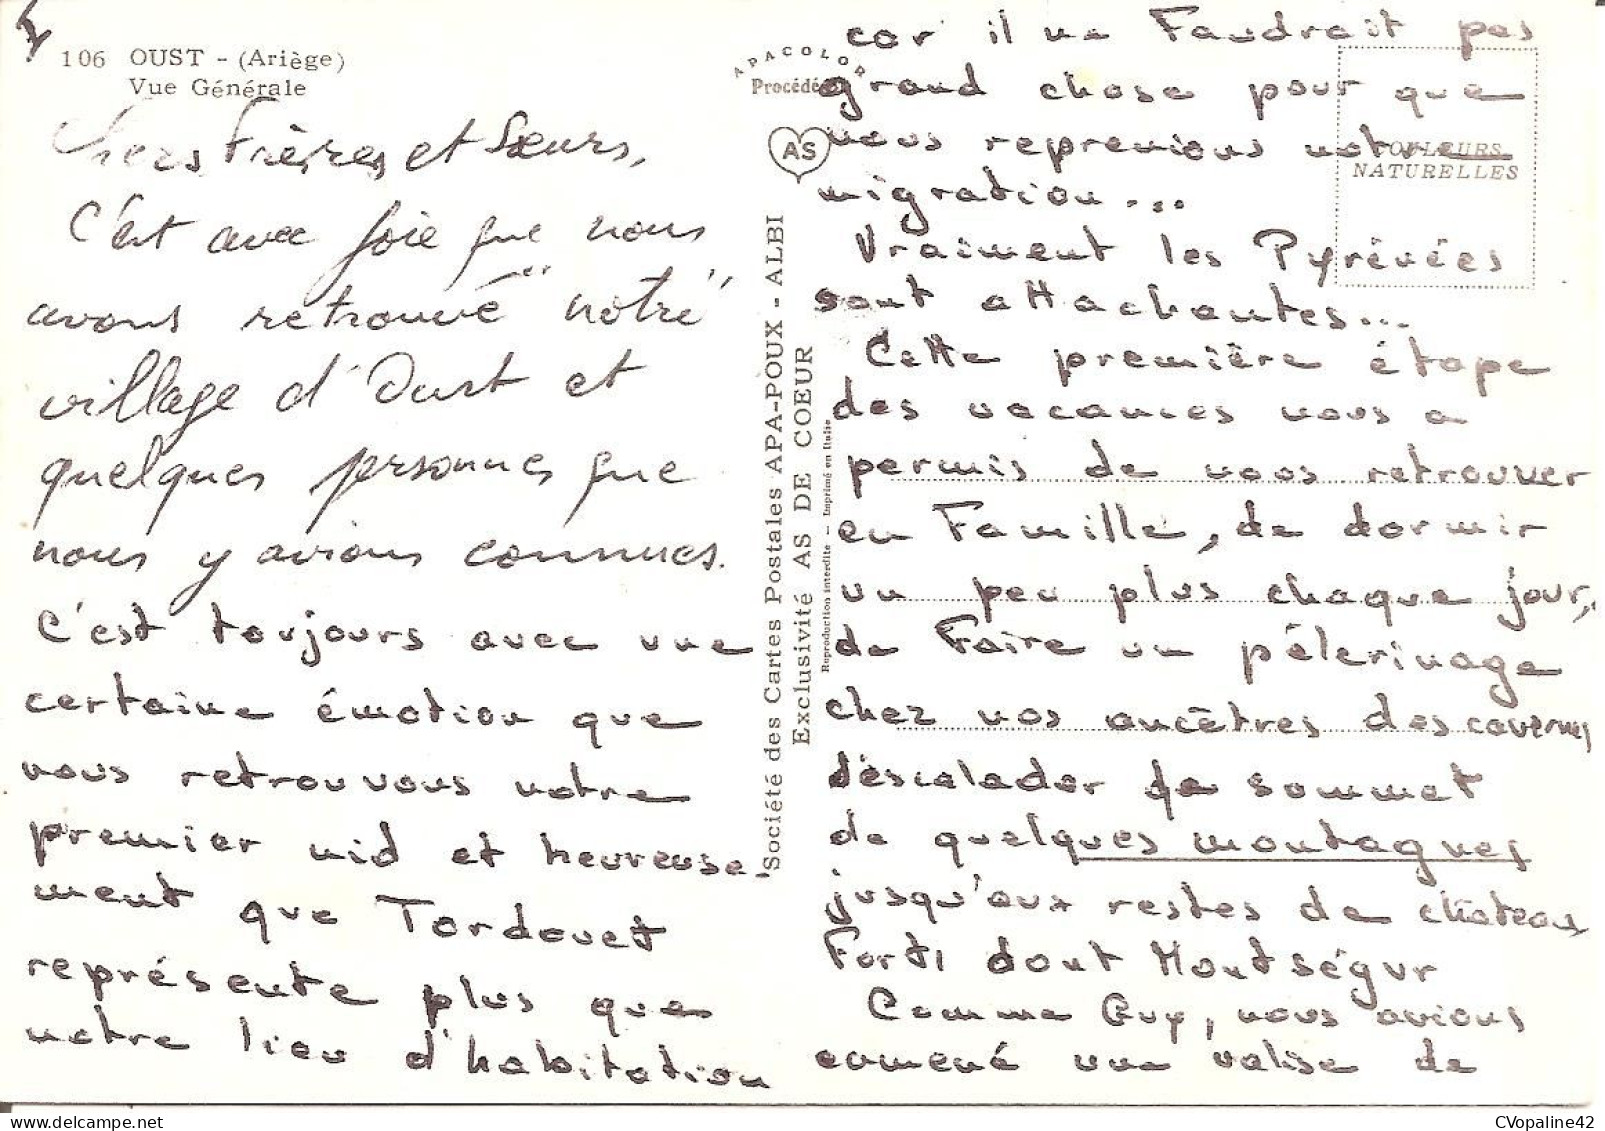 I
106 OUST - (Ariège)
Vue Générale
Chers Frères et Sœurs,
C'est avec joie que nous
avons retrouvé "notre"
village d'Oust et
quelques personnes que
nous y avions connues.
C'est toujours avec une
certaine émotion que
nous retrouvons notre
premier nid et heureuse
ment que Tordouet
représente plus que
notre lieu d'habitation
APACOLOR
Procédé
AS
Société des Cartes Postales APA-POUX - ALBI
Exclusivité AS DE COEUR
Reproduction interdite — Imprimé en Italie
COULEURS
NATURELLES
car il ne Faudrait pas
grand chose pour que
nous reprenions notre
migration...
Vraiment les Pyrénées
sont attachantes...
Cette première étape
des vacances nous a
permis de nous retrouver
en Famille, de dormir
un peu plus chaque jour,
de Faire un pélerinage
chez nos ancêtres des cavernes
d'escalader le sommet
de quelques montagnes
jusqu'aux restes de chateau
Forts dont Montségur
Comme Guy, nous avions
emmené une valise de
CVopaline42